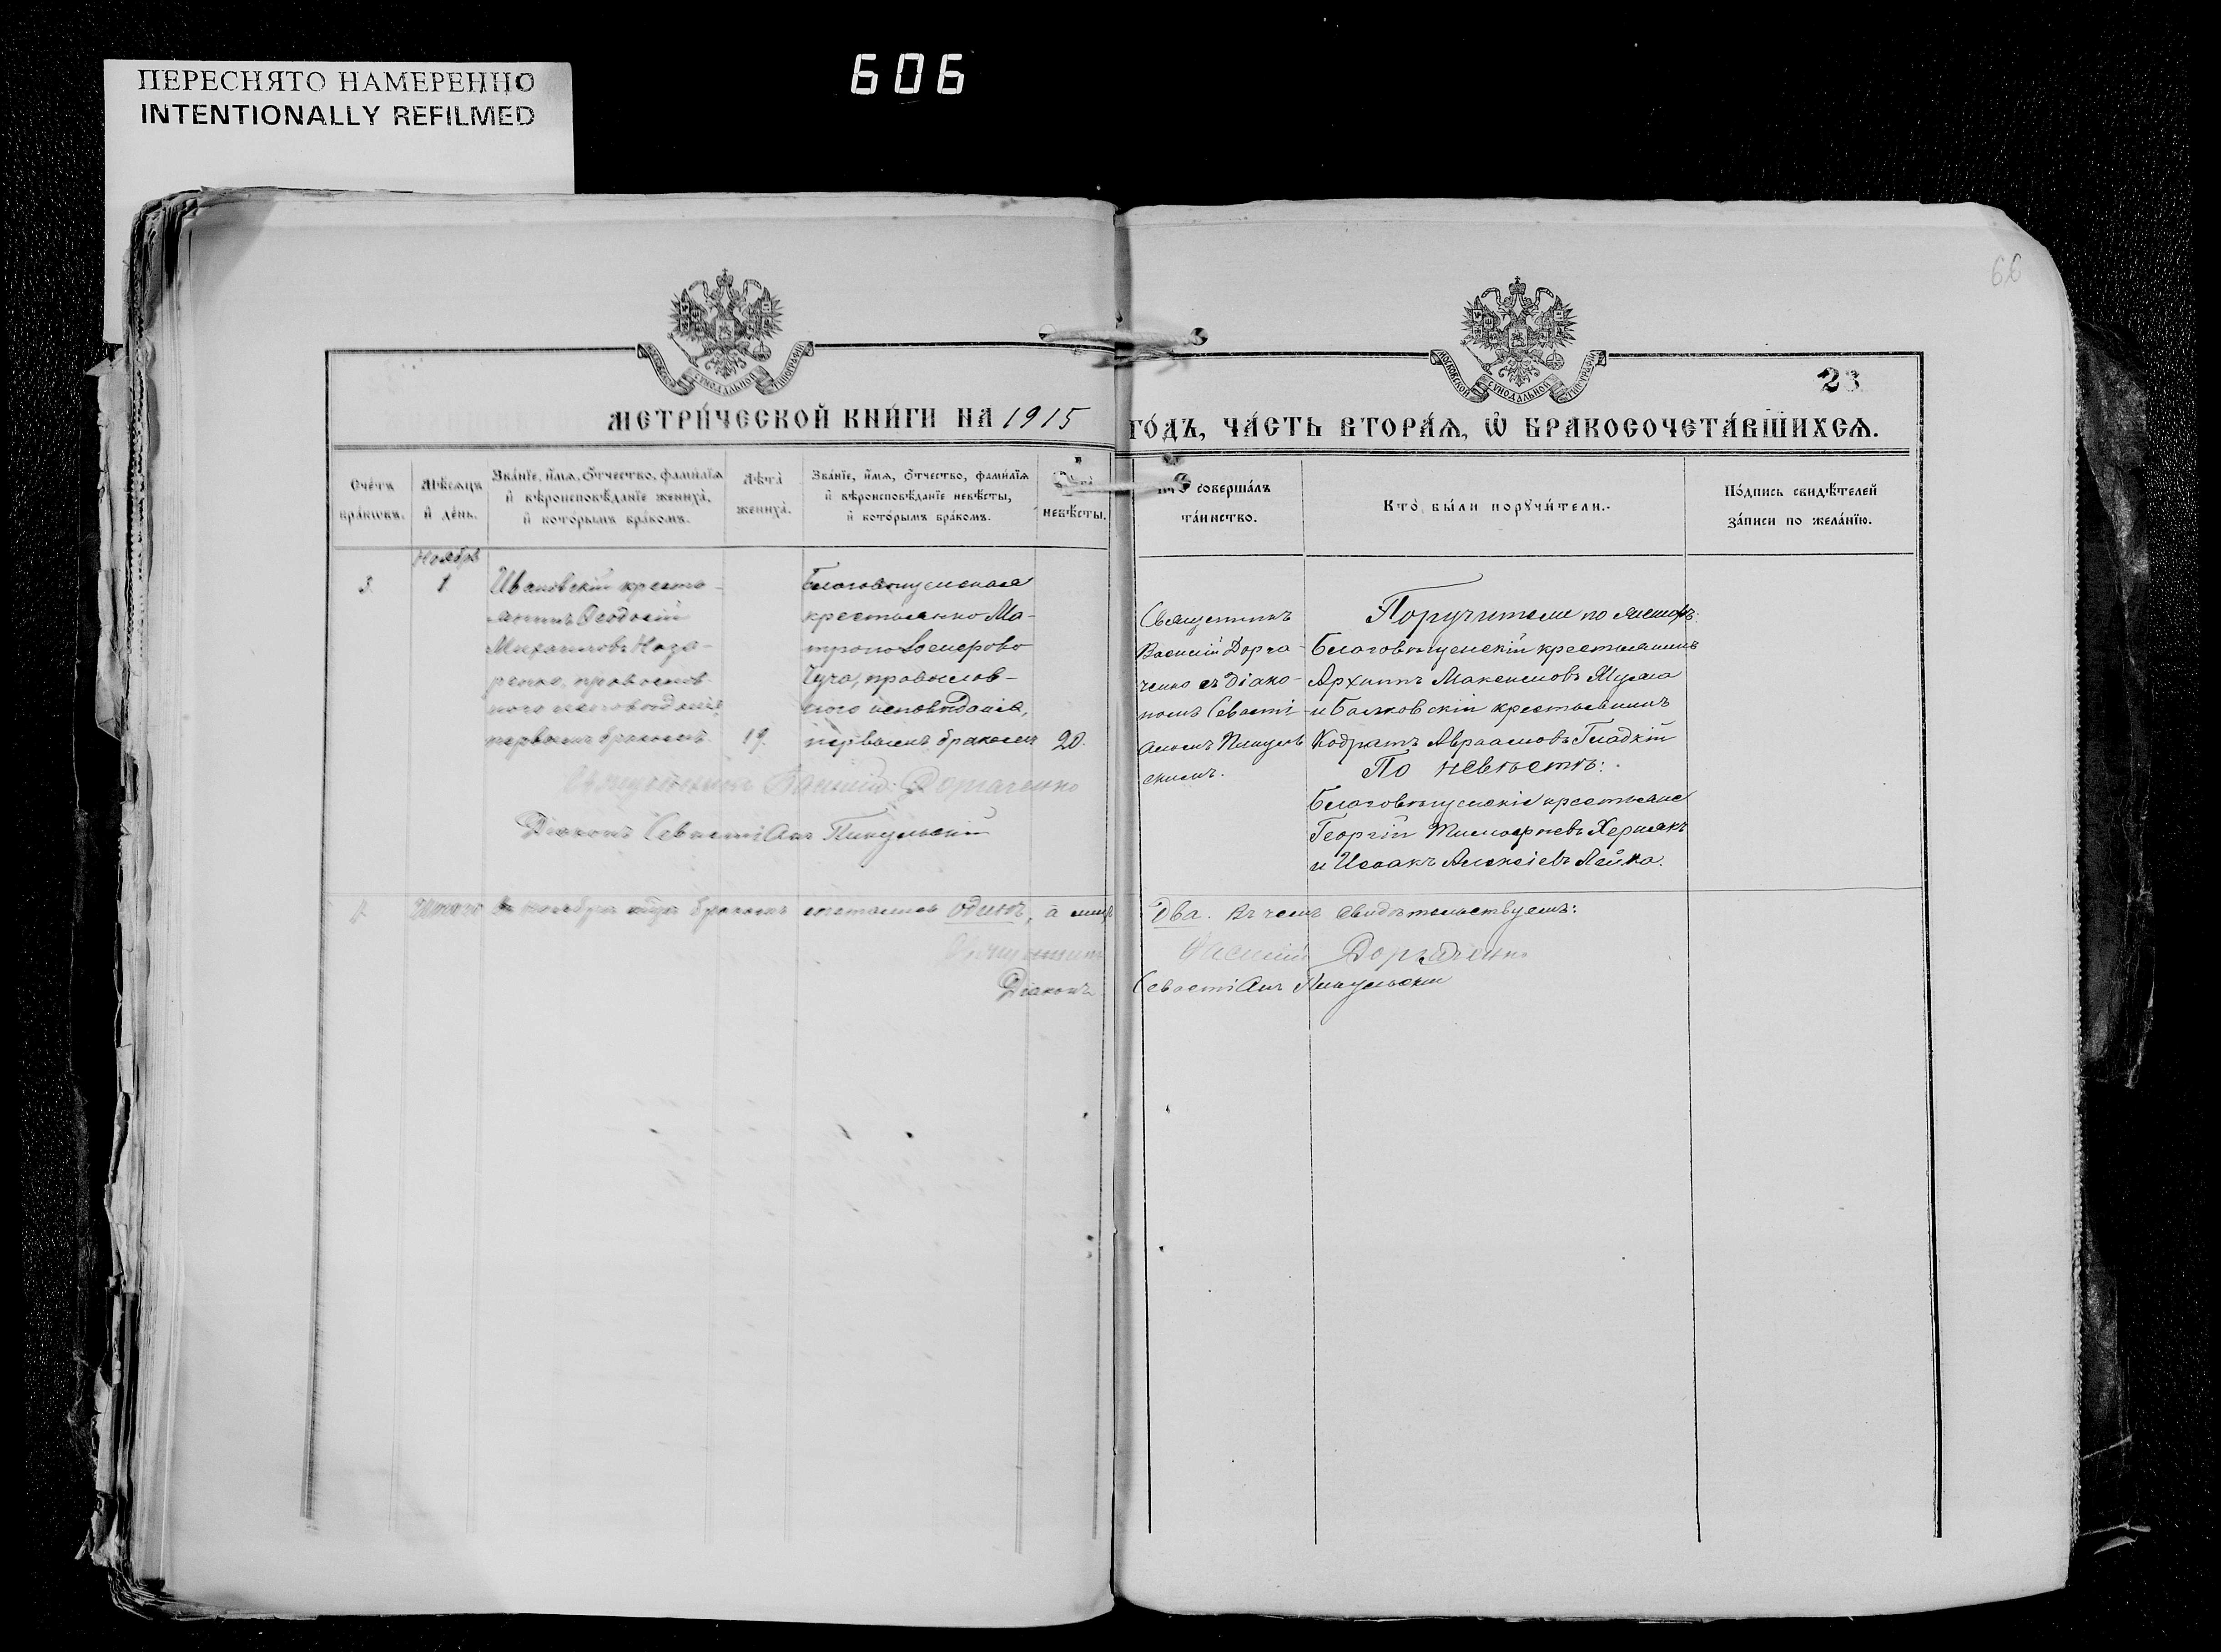 606
ПЕРЕСНЯТО НАМЕРЕННО
INTENTIONALLY REFILMED
66
23
МЕТРИ́ЧЕСКОЙ КНИ́ГИ НА 1915
ГО́ДЪ, ЧА́СТЬ ВТОРА́Ѧ, Ѡ҆ БРАКОСОЧЕТА́ВШИХСѦ.
Сче́тъ бра́кѡвъ.
Мѣ́сяцъ и҆ де́нь.
Зва́нїе, и҆́мѧ, ѻ҆́тчество, фами́лїѧ и҆ вѣроисповѣ́данїе жениха̀, и҆ кото́рымъ бра́комъ.
Лѣ́та жениха̀.
Зва́нїе, и҆́мѧ, ѻ҆́тчество, фами́лїѧ и҆ вѣроисповѣ́данїе невѣ́сты, и҆ кото́рымъ бра́комъ.
невѣ́сты.
соверша́лъ та́инство.
Кто̀ бы́ли порꙋчи́тели.
По́дпись свидѣ́телей за́писи по жела́нїю.
Ноябрь
3.
1
Ивановскій кресть-
янинъ Ѳеодосій
Михаиловъ Наза-
ренко, православ-
ного исповѣданія,
первымъ бракомъ.
19.
крестьянка Ма-
православ-
ного исповѣданія,
первымъ бракомъ
20.
Священникъ
Василій Дорга-
ченко съ Діако-
номъ Севасті-
Поручители по женихѣ:
крестьянинъ
Архипъ Максимовъ
и Балковскій крестьянинъ
Кодратъ Авраамовъ Гладкій
По невѣстѣ:
крестьяне
Георгій Тимофѣевъ Херсякъ
и Исаакъ Алексіевъ
Священникъ Василій Доргаченко
Діаконъ Севастіанъ Пикульскій
Итого въ Ноябрѣ мѣсяцѣ браковъ одинъ, а лицъ
два. Въ чемъ свидѣтельствуемъ:
Священникъ
Василій Доргаченко
Діаконъ
Севастіанъ Пикульскій